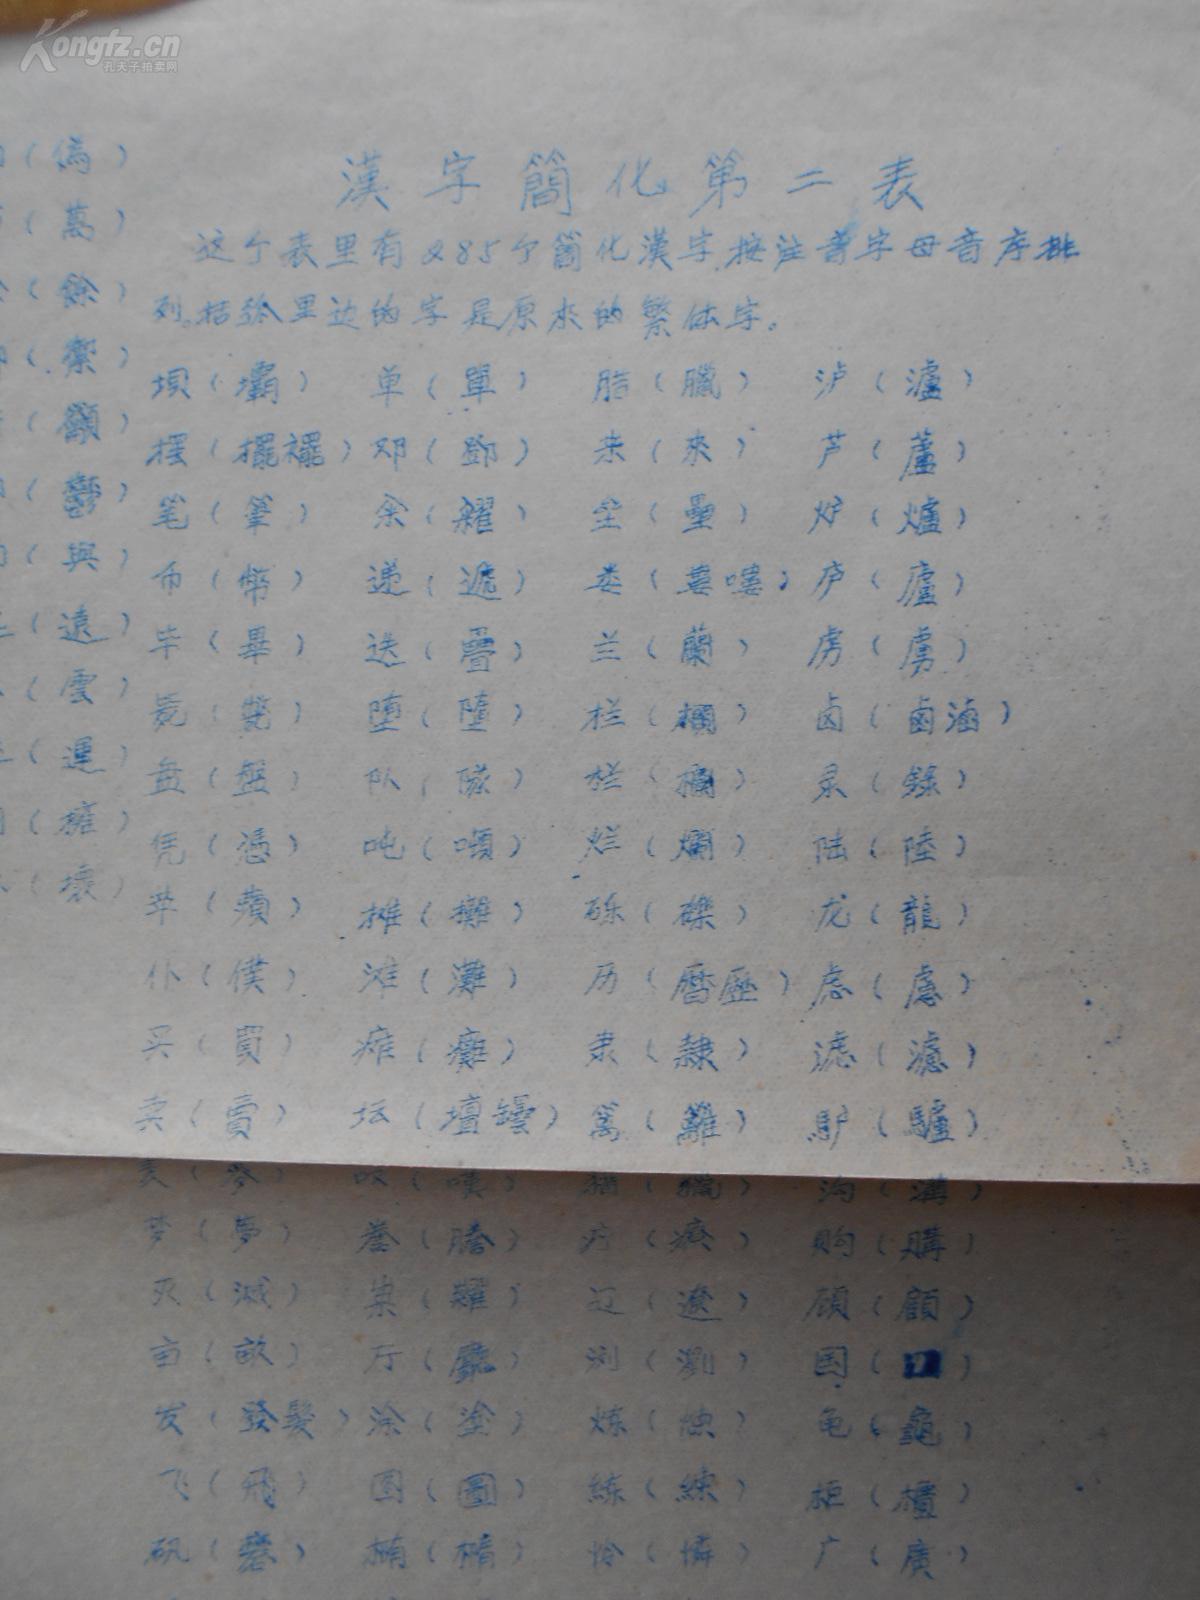 Kongfz.cn
孔夫子拍卖网
漢字簡化第二表
这个表里有285个简化漢字,按注音字母音序排
列。括弧里边的字是原来的繁体字。
(僞) 坝(壩) 单(單) 腊(臘) 泸(瀘)
(萬) 摆(擺襬) 邓(鄧) 来(來) 芦(蘆)
(餘) 笔(筆) 籴(糴) 垒(壘) 炉(爐)
(禦) 币(幣) 递(遞) 娄(婁嘍) 庐(廬)
(籲) 毕(畢) 迭(疊) 兰(蘭) 虏(虜)
(鬱) 毙(斃) 堕(墮) 拦(攔) 卤(鹵滷)
(與) 盘(盤) 队(隊) 栏(欄) 录(錄)
(遠) 凭(憑) 吨(噸) 烂(爛) 陆(陸)
(雲) 苹(蘋) 摊(攤) 砾(礫) 龙(龍)
(運) 仆(僕) 滩(灘) 历(曆歷) 虑(慮)
(擁) 买(買) 瘫(癱) 隶(隸) 滤(濾)
(壞) 卖(賣) 坛(壇罎) 篱(籬) 驴(驢)
麦(麥) 叹(嘆) 猎(獵) 沟(溝)
梦(夢) 誊(謄) 疗(療) 购(購)
灭(滅) 粜(糶) 辽(遼) 顾(顧)
亩(畝) 厅(廳) 浏(瀏) 国
发(發髮) 涂(塗) 炼 龟(龜)
飞(飛) 图(圖) 練(練) 柜(櫃)
矾(礬) 椭(橢) 怜(憐) 广(廣)